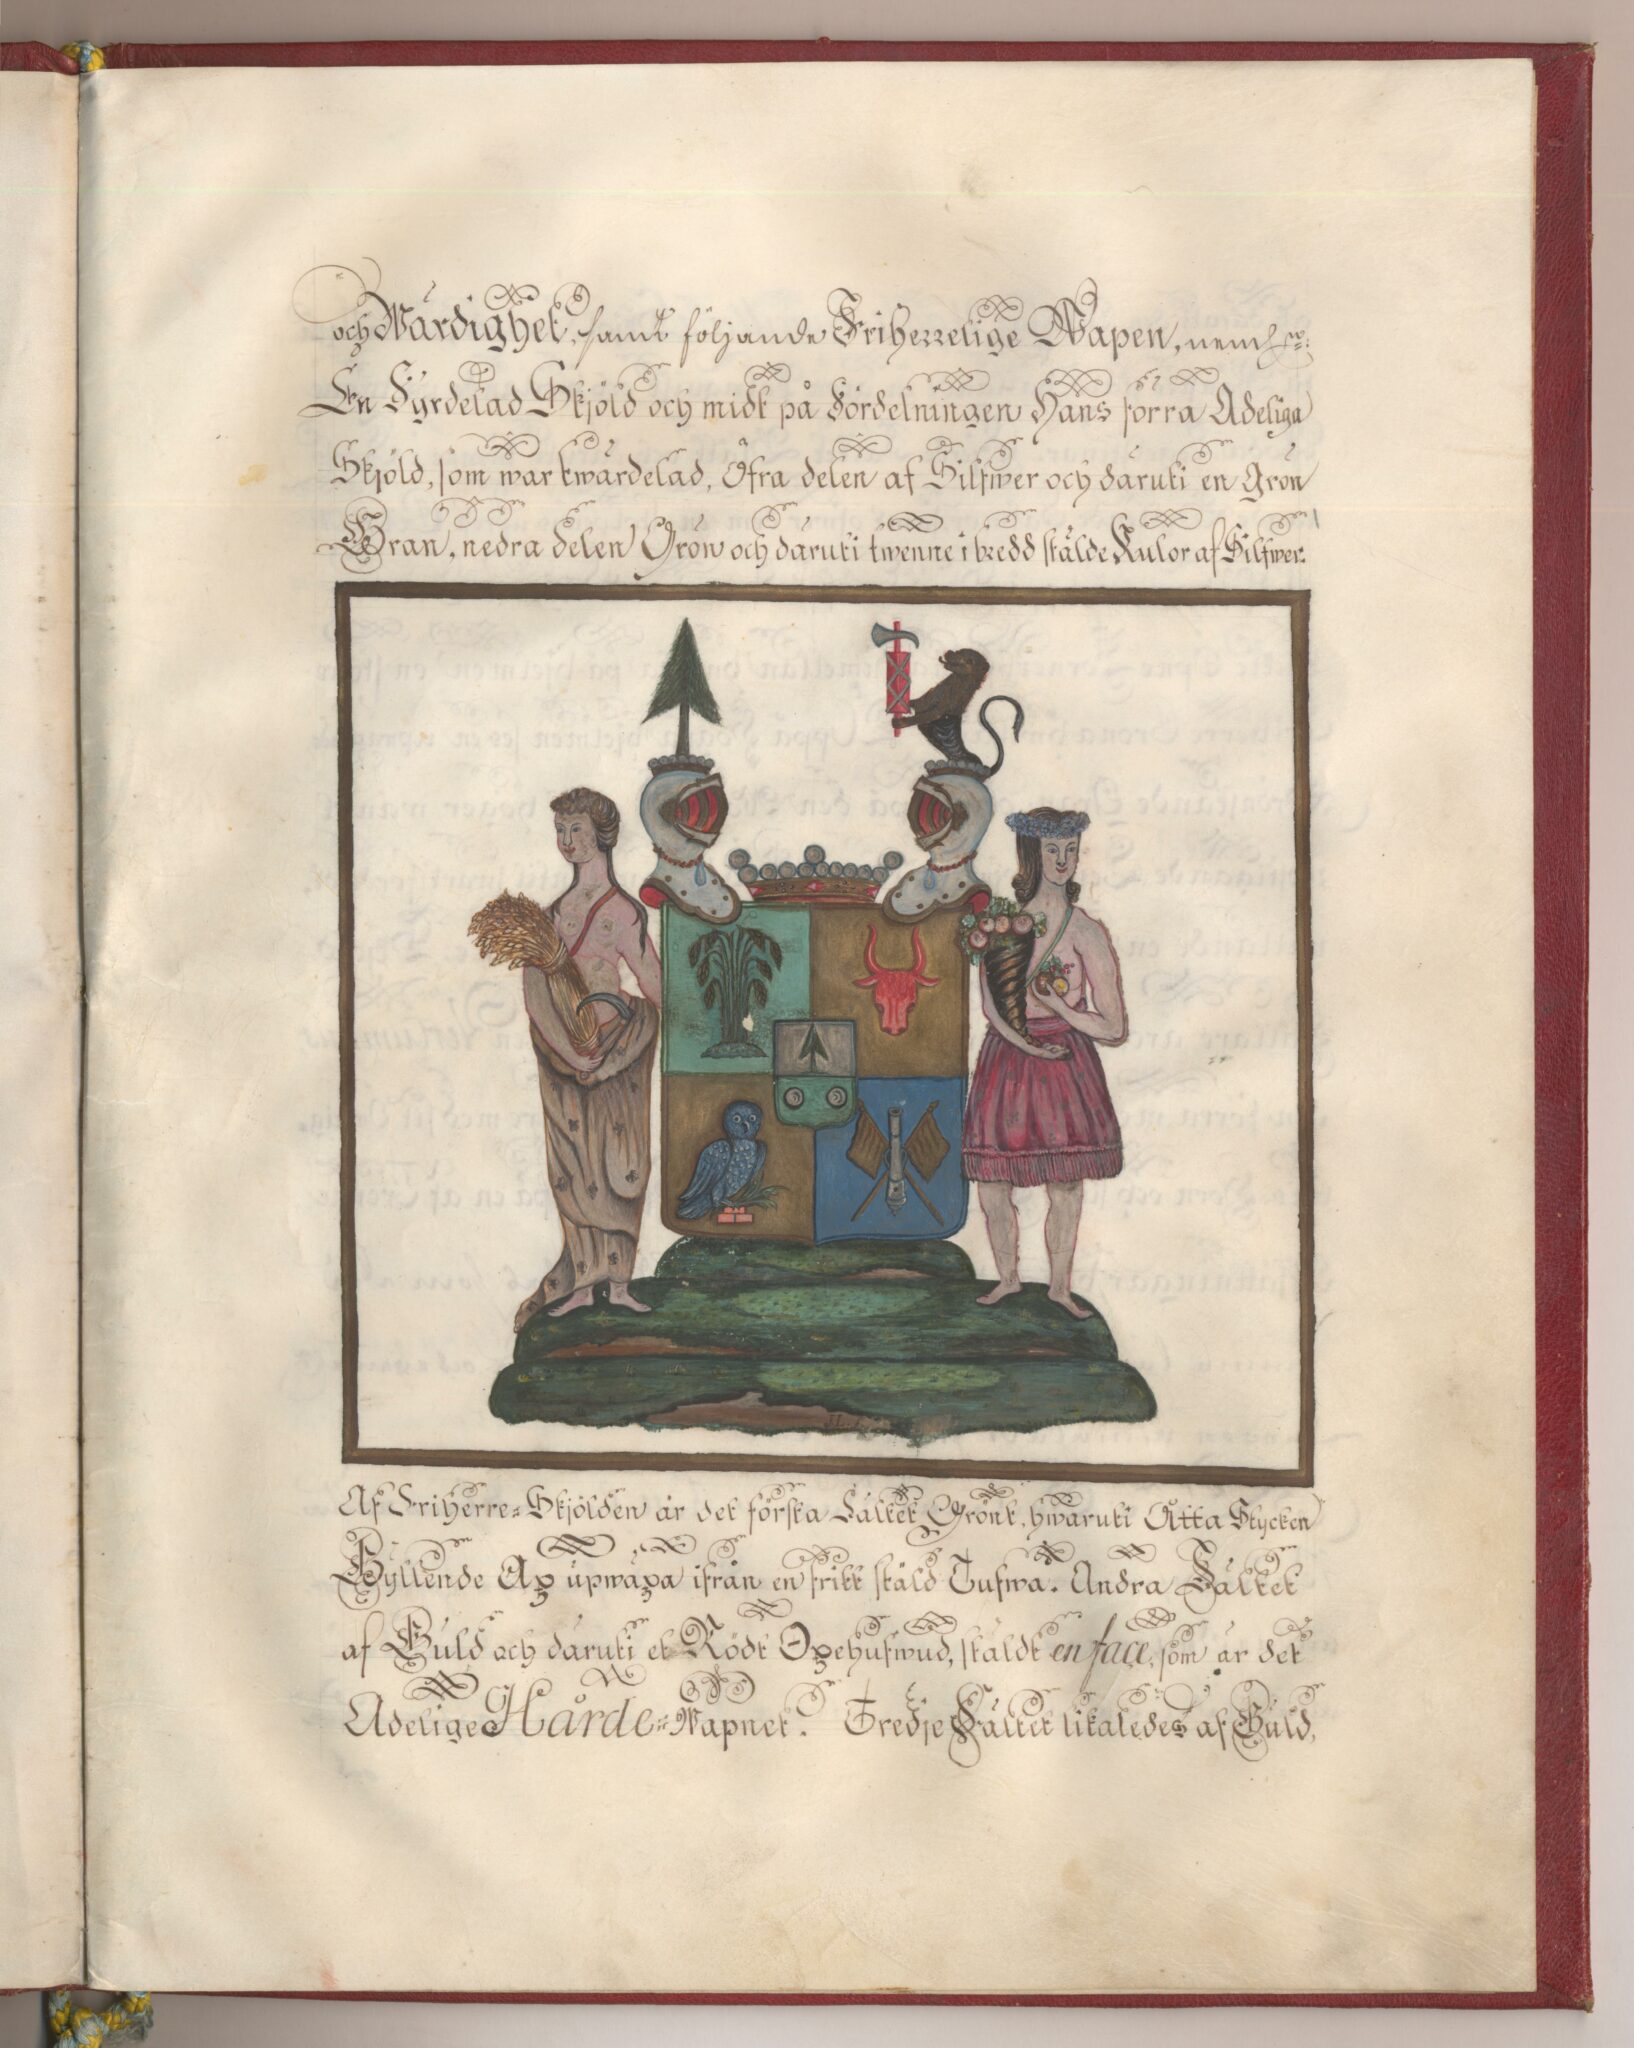 och Wärdighet, samt följande Friherrelige Wapen, neml:
En Fyrdelad Skjöld och midt på Fördelningen Hans förra Adeliga
Skjöld, som war twärdelad, Öfra delen af Silfwer och däruti en grön
Gran, nedra delen Grön och däruti twenne i bredd stälde Kulor af Silfwer.
Af Friherre-Skjölden är det första Fältet Grönt, hwaruti Åtta Stycken
Gyllende Ax upwäxa ifrån en fritt stäld Tufwa. Andra Fältet
af Guld och däruti et Rödt Oxehufwud, stäldt en face, som är det
Adelige Hårde-Wapnet. Tredje Fältet likaledes af Guld,